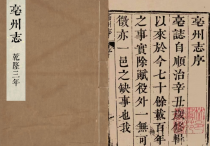 亳州志
乾隆三年
亳州志序
亳誌自順治辛丑歲修輯
以來於今七十餘載百年
之事實除賦役外一無可
徵亦一邑之缺事也我